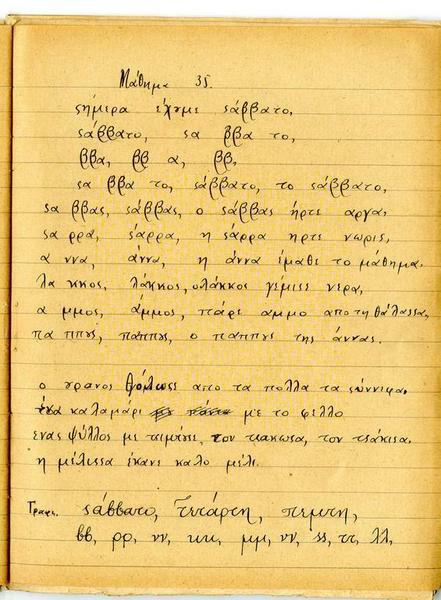 Μάθημα 35.
ςήμερα έχυμε ςάββατο.
ςάββατο, ςα ββα το,
ββα, ββ α, ββ,
ςα ββα το, ςάββατο, το ςάββατο,
ςα ββας, ςάββας, ο ςάββας ήρτε αργα,
ςα ρρα, ςάρρα, η ςάρρα ηρτε νωρις,
α ννα, άννα, η άννα έμαθε το μάθημα.
λα κκος, λάκκος, ολάκκος γέμιςε νερα,
α μμος, άμμος, πάρε αμμο απο τη θάλαςςα,
πα ππυς, παππυς, ο παππυς της άννας.
ο υρανος θόλωςε απο τα πολλα τα ςύννιφα.
καλαμάρι με το φελλο
ενας ψύλλος με τςιμάει, τον τςακωςα, τον τςάκιςα.
η μέλιςςα έκανε καλο μέλι.
Γραφη. ςάββατο, Τετάρτη, πεμτη,
ββ, ρρ, νν, κκ, μμ, νν, ςς, ττ, λλ,